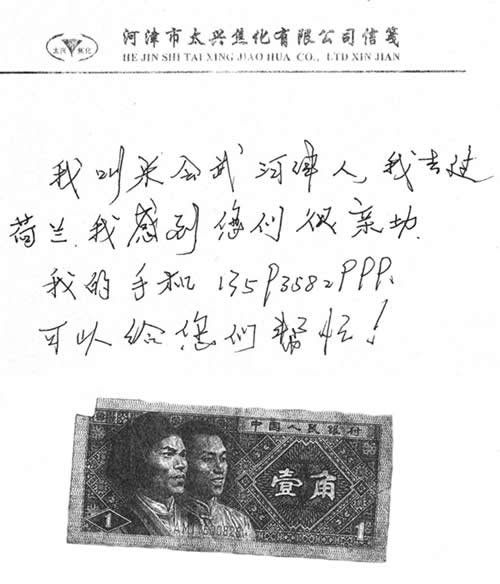 太兴 焦化
河津市太兴焦化有限公司信笺
HE JIN SHI TAI XING JIAO HUA CO., LTD XIN JIAN
我叫米会武 河津人,我去过
荷兰.我感到您们很亲切.
我的手机 13593582999.
可以给您们帮忙!
中国人民银行
壹角
1
1